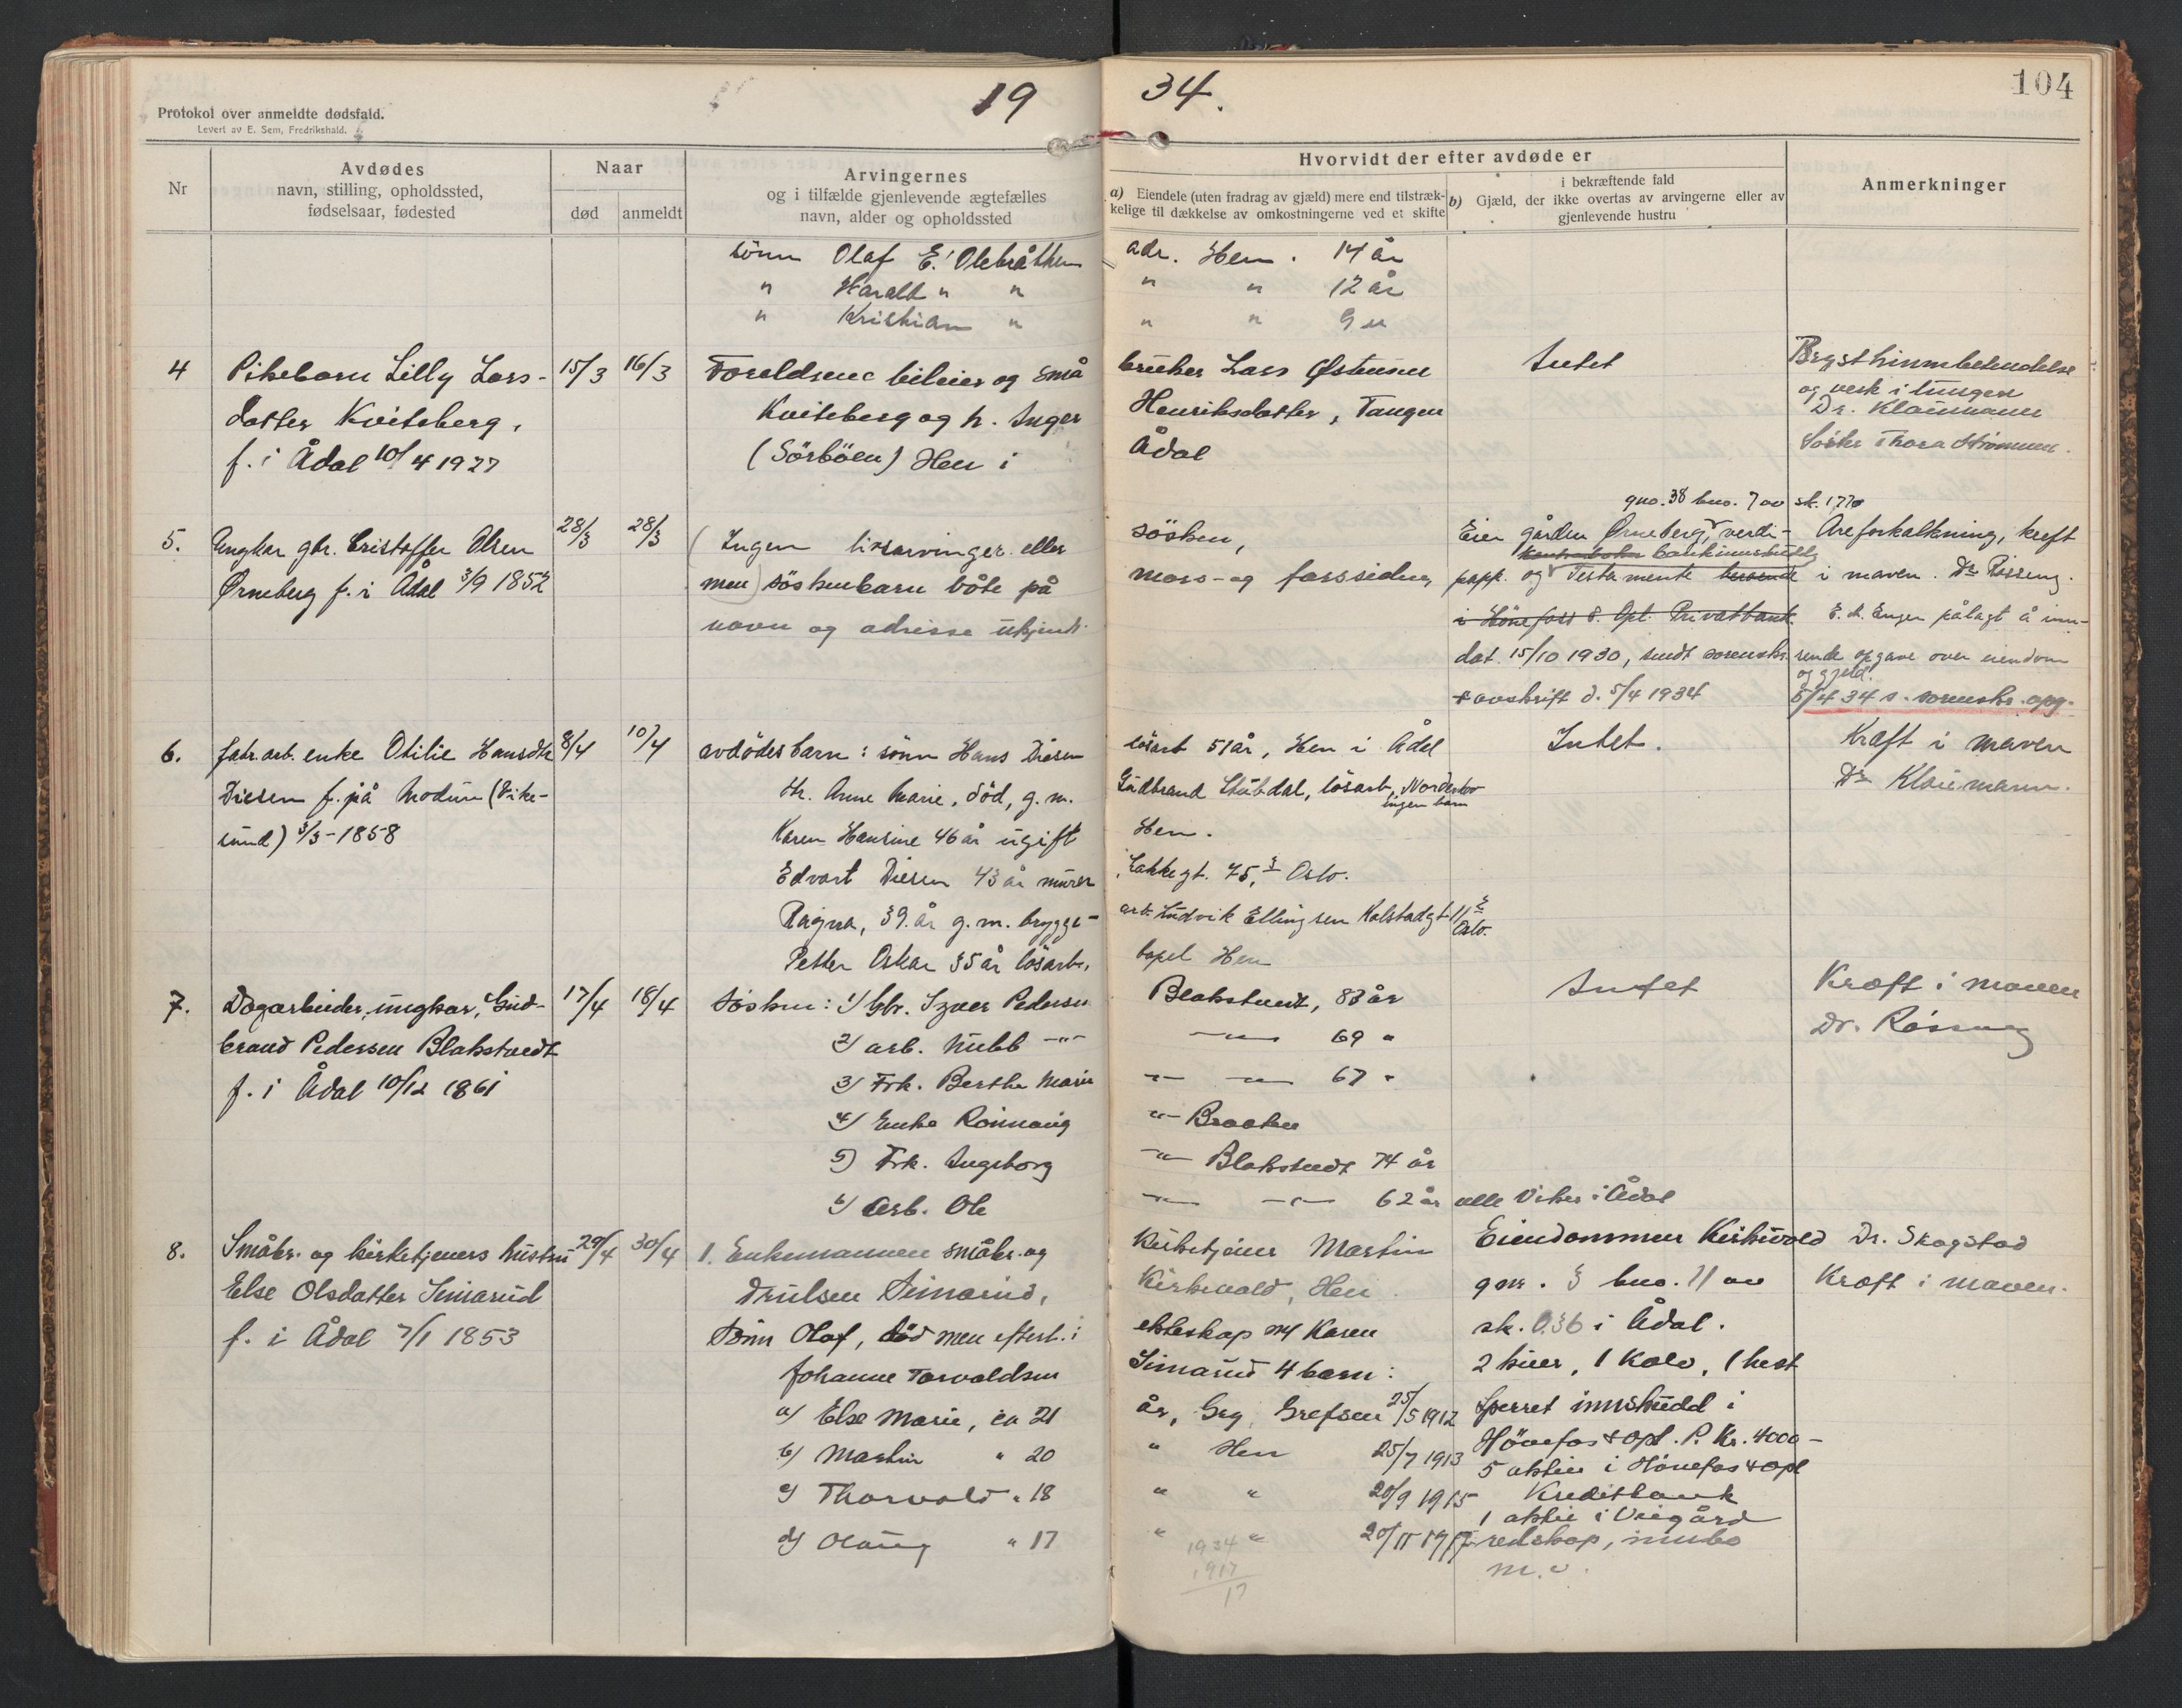 19 34.
104
Protokol over anmeldte dødsfald.
Levert av E. Sem, Fredrikshald.
Nr
Avdødes
navn, stilling, opholdssted,
fødselsaar, fødested
Naar
død anmeldt
Arvingernes
og i tilfælde gjenlevende ægtefælles
navn, alder og opholdssted
Hvorvidt der efter avdøde er
a) Eiendele (uten fradrag av gjæld) mere end tilstræk-
kelige til dækkelse av omkostningerne ved et skifte
i bekræftende fald
b) Gjæld, der ikke overtas av arvingerne eller av
gjenlevende hustru
Anmerkninger
sönn Olaf E. Olebråthen adr. Hen. 14 år
" Harald " " " " 12 år
" Kristian " " " 9 "
4 Pikebarn Lilly Lars- 15/3 16/3 Foreldrene bileier og små bruker Lars Østensen Intet
datter Kviteberg, Kviteberg og h. Inger Henriksdatter, Tangen
f. i Ådal 10/4 1927 (Sörböen) Hen i Ådal
Brysthinnebetendelse
og verk i lungen
Dr. Klaumann
Söster Thora
5. Ungkar gbr. Cristoffer Olsen 28/3 28/3 (Ingen livsarvinger eller sösken,
Ørneberg f. i Ådal 3/9 1852 men) söskenbarn både på mors- og farssiden,
navn og adresse ukjendt.
gno. 38 bno. 7 av sk. 1.770
Eier gården Ørneberg, verdi-
bankinnskudd
papp. og Testamente beroende
i Hönefoss & Opl. Privatbank
dat. 15/10 1930, sendt sorenskr.
+ avskrift d. 5/4 1934
Areforkalkning, kreft
i maven. Dr. Rösseng.
E. A. Enger pålagt å inn-
sende opgave over eiendom
og gjeld.
5/4 34 s. sorenskr. opg.
6. fabr.arb. enke Otilie Hansdtr 8/4 10/4 avdödes barn: sönn Hans Diesen lösarb 51 år, Hen i Ådal Intet. Kræft i maven
Diesen f. på Modum (Vike- dtr. Anne Marie, död, g. m. Gudbrand Stubdal, lösarb, Norderhov Dr. Klaumann.
ingen barn
sund) 3/3-1858 Karen Hansine 46 år ugift Hen.
Edvart Diesen 43 år murer Lakkegt. 75, 3 Oslo.
Ragna, 39 år g. m. brygge- arb. Ludvik Ellingsen Kolstadgt 11/2 Oslo.
Petter Oskar 35 år lösarb. Hen
7. Dagarbeider, ungkar, Gud- 17/4 18/4 Söskn: 1) Gbr. Iver Pedersen Blakstvedt, 83 år Intet Kræft i maven
brand Pedersen Blakstvedt 2) arb. Nubb —"— —"— 69 " Dr. Rösseng
f. i Ådal 10/12 1861 3) Frk. Berthe Marie —"— —"— 67 "
4) Enke Rönnaug —"— Braaten
5) Frk. Ingeborg —"— Blakstvedt 74 år
6) Arb. Ole —"— —"— 62 år alle Viker i Ådal
8. Småbr. og kirketjeners hustru 29/4 30/4 1. Enkemannen småbr. og Kirketjener Martin Eiendommen Kirkevold Dr. Skogstad
Else Olsdatter Simarud Trulsen Simarud, Kirkevold, Hen. gnr. 3 bno. 11 av Kræft i maven.
f. i Ådal 7/1 1853 Sönn Olaf, död men efterl. i ekteskap m/ Karen sk. 0.36 i Ådal.
Johanne Torvaldsen Simarud 4 barn: 2 kuer, 1 kalv, 1 hest
a) Else Marie, ca 21 år, Grefsen 25/5 1912 Sperret innskudd i
b) Martin " 20 " Hen 25/7 1913 Hönefos & Opl. P. Kr. 4000-
5 aktier i Hönefos & Opl
c) Thorvald " 18 " " 20/9 1915 Kreditbank
1 aktie i Viegård
d) Olaug " 17 " " 20/11 1917 redskap, innbo
m.v.
1934
1917
17